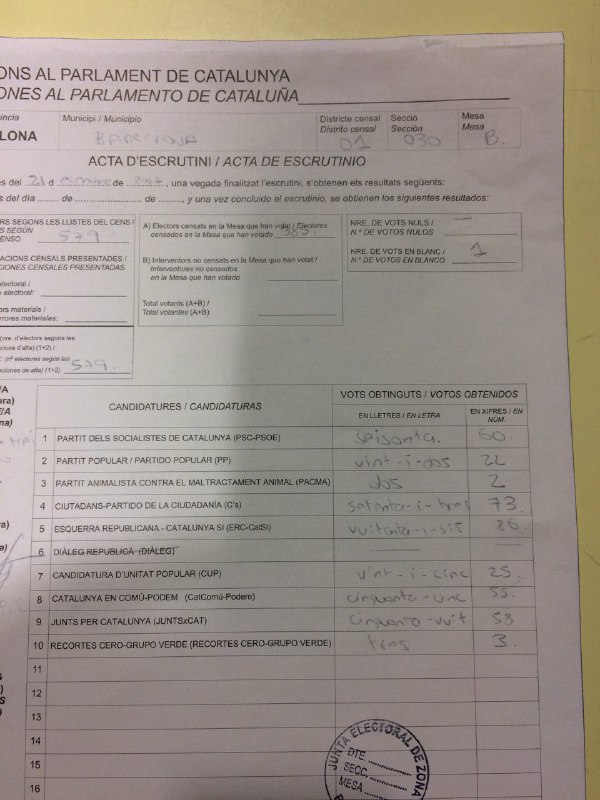 ONS AL PARLAMENT DE CATALUNYA
ONES AL PARLAMENTO DE CATALUÑA
Municipi / Municipio
LONA
BARCELONA
Districte censal
Distrito censal
01
Secció
Sección
030
Mesa
Mesa
B.
ACTA D'ESCRUTINI / ACTA DE ESCRUTINIO
es del 21 d de 2017, una vegada finalitzat l'escrutini, s'obtenen els resultats següents:
s del día ........ de ........................ de ..........., y una vez concluido el escrutinio, se obtienen los siguientes resultados:
RS SEGONS LES LLISTES DEL CENS /
SEGÚN
ENSO
579
A) Electors censats en la Mesa que han votat / Electores
censados en la Mesa que han votado
B) Interventors no censats en la Mesa que han votat /
Interventores no censados
en la Mesa que han votado
Total votants (A+B) /
Total votantes (A+B)
NRE. DE VOTS NULS /
N.º DE VOTOS NULOS
—
NRE. DE VOTS EN BLANC /
N.º DE VOTOS EN BLANCO
1
ACIONS CENSALS PRESENTADES /
CIONES CENSALES PRESENTADAS
electoral /
electoral:
ors materials /
rrores materiales:
(nre. d'electors segons les
cions d'alta) (1+2) /
(nº electores según las
aciones de alta) (1+2)
579.
CANDIDATURES / CANDIDATURAS
VOTS OBTINGUTS / VOTOS OBTENIDOS
EN LLETRES / EN LETRA
EN XIFRES / EN NÚM.
1 PARTIT DELS SOCIALISTES DE CATALUNYA (PSC-PSOE) seisanta. 60.
2 PARTIT POPULAR / PARTIDO POPULAR (PP) vint-i-dos 22
3 PARTIT ANIMALISTA CONTRA EL MALTRACTAMENT ANIMAL (PACMA) dos 2
4 CIUTADANS-PARTIDO DE LA CIUDADANÍA (C's) setanta-i-tres 73.
5 ESQUERRA REPUBLICANA - CATALUNYA SÍ (ERC-CatSí) vuitanta-i-sis 86
6 DIÀLEG REPUBLICÀ (DIÀLEG)
7 CANDIDATURA D'UNITAT POPULAR (CUP) vint-i-cinc 25.
8 CATALUNYA EN COMÚ-PODEM (CatComú-Podem) cinquanta-cinc 55.
9 JUNTS PER CATALUNYA (JUNTSxCAT) cinquanta-vuit 58
10 RECORTES CERO-GRUPO VERDE (RECORTES CERO-GRUPO VERDE) tres 3.
11
12
13
14
15
16
JUNTA ELECTORAL DE ZONA
DTE.
SECC.
MESA